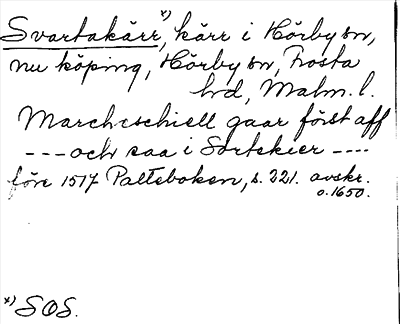 Svartakärr, x) kärr i Hörby sn,
nu köping, Hörby sn, Frosta
hd, Malm. l.
Marchschiell gaar först aff
--- och saa i Sortekier ----
före 1517 Palteboken, s. 221. avskr.
o. 1650.
x) SOS.